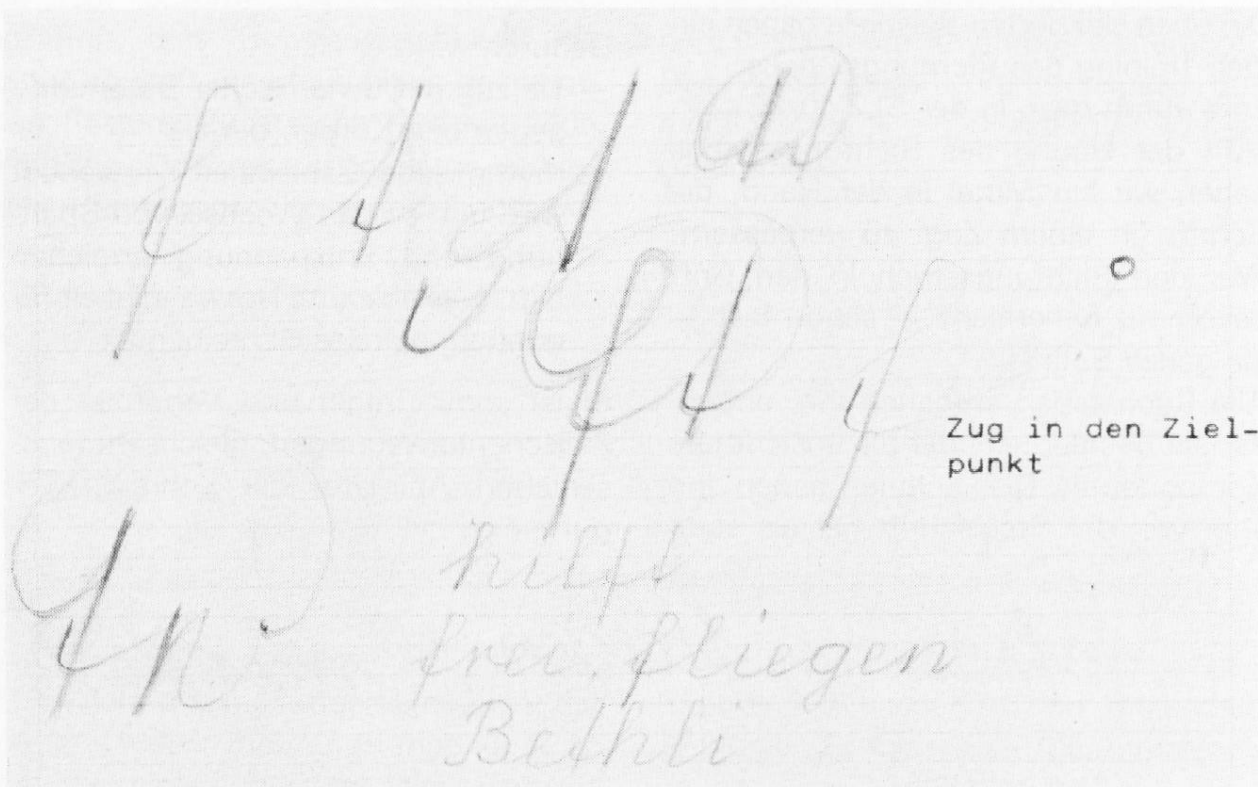 Zug in den Ziel-
punkt
hilft
frei, fliegen
Bethli